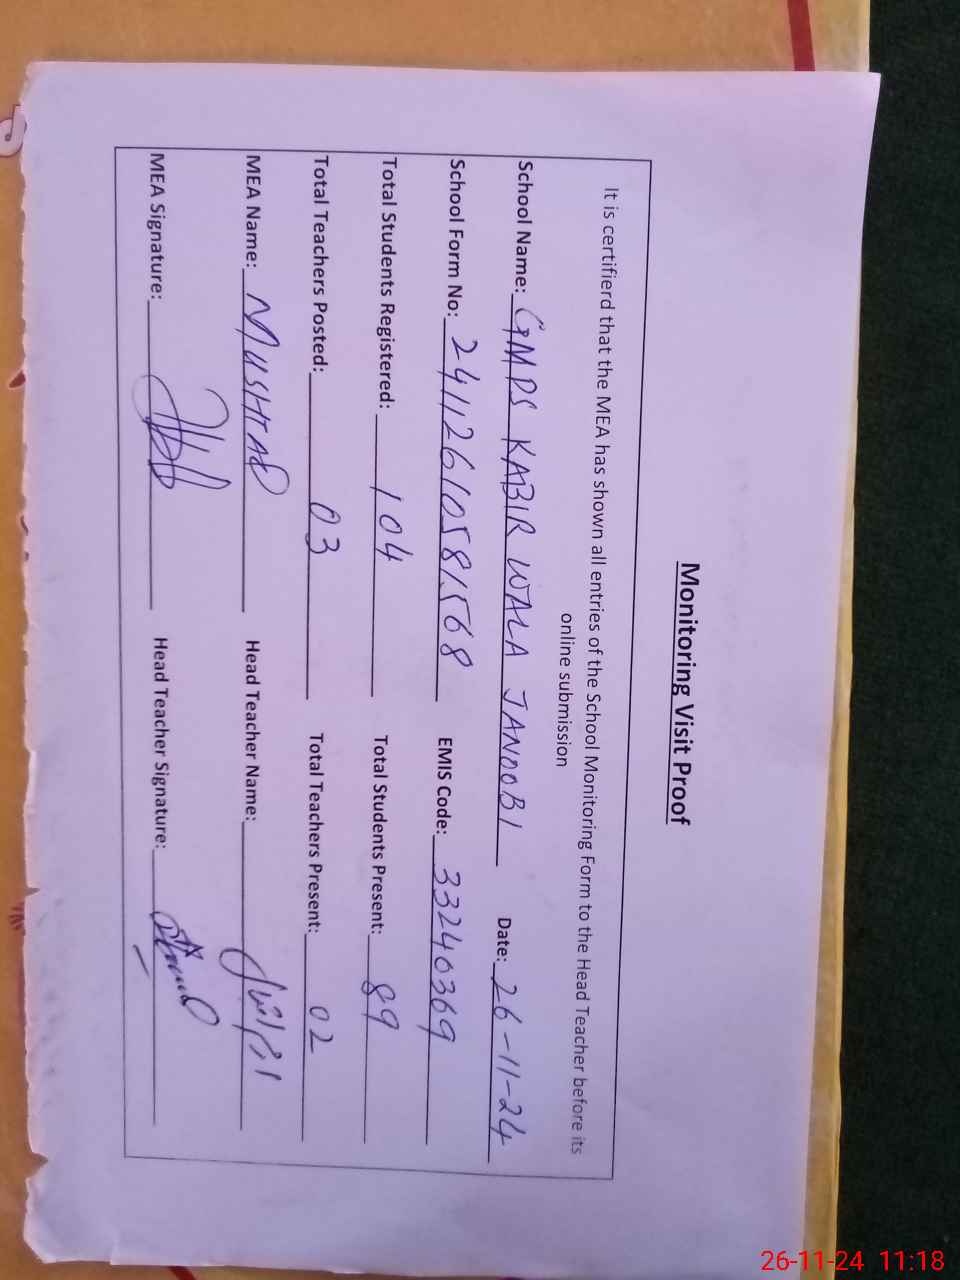 Monitoring Visit Proof
It is certifierd that the MEA has shown all entries of the School Monitoring Form to the Head Teacher before its
online submission
School Name: GMPS KABIR WALA JANOOBI Date: 26-11-24
School Form No: 241126105815568 EMIS Code: 33240369
Total Students Registered: 104 Total Students Present: 89
Total Teachers Posted: 03 Total Teachers Present: 02
MEA Name: MUSHTAQ Head Teacher Name:
MEA Signature: Head Teacher Signature:
26-11-24 11:18